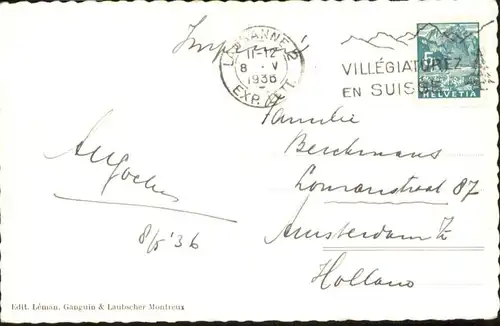 LAUSANNE 2
11-12
8 V
1936
EXP. LETT.
VILLÉGIATUREZ
EN SUISSE
5
HELVETIA
Familie
Berckmans
Lomanstraat 87
Amsterdam Z
Holland
8/5 '36
Edit. Léman. Ganguin & Laubscher Montreux